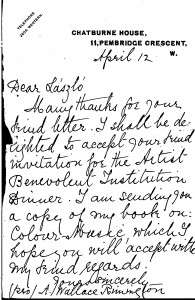 TELEPHONE
2908 WESTERN.
CHATBURNE HOUSE,
11, PEMBRIDGE CRESCENT,
W.
April 12
Dear László
Many thanks for your
kind letter. I shall be de-
lighted to accept your kind
invitation for the Artist
Benevolent Institution
Dinner. I am sending you
a copy of my book on:
Colour Music which I
hope you will accept with
my kind regards.
Yours sincerely
A. Wallace Rimington